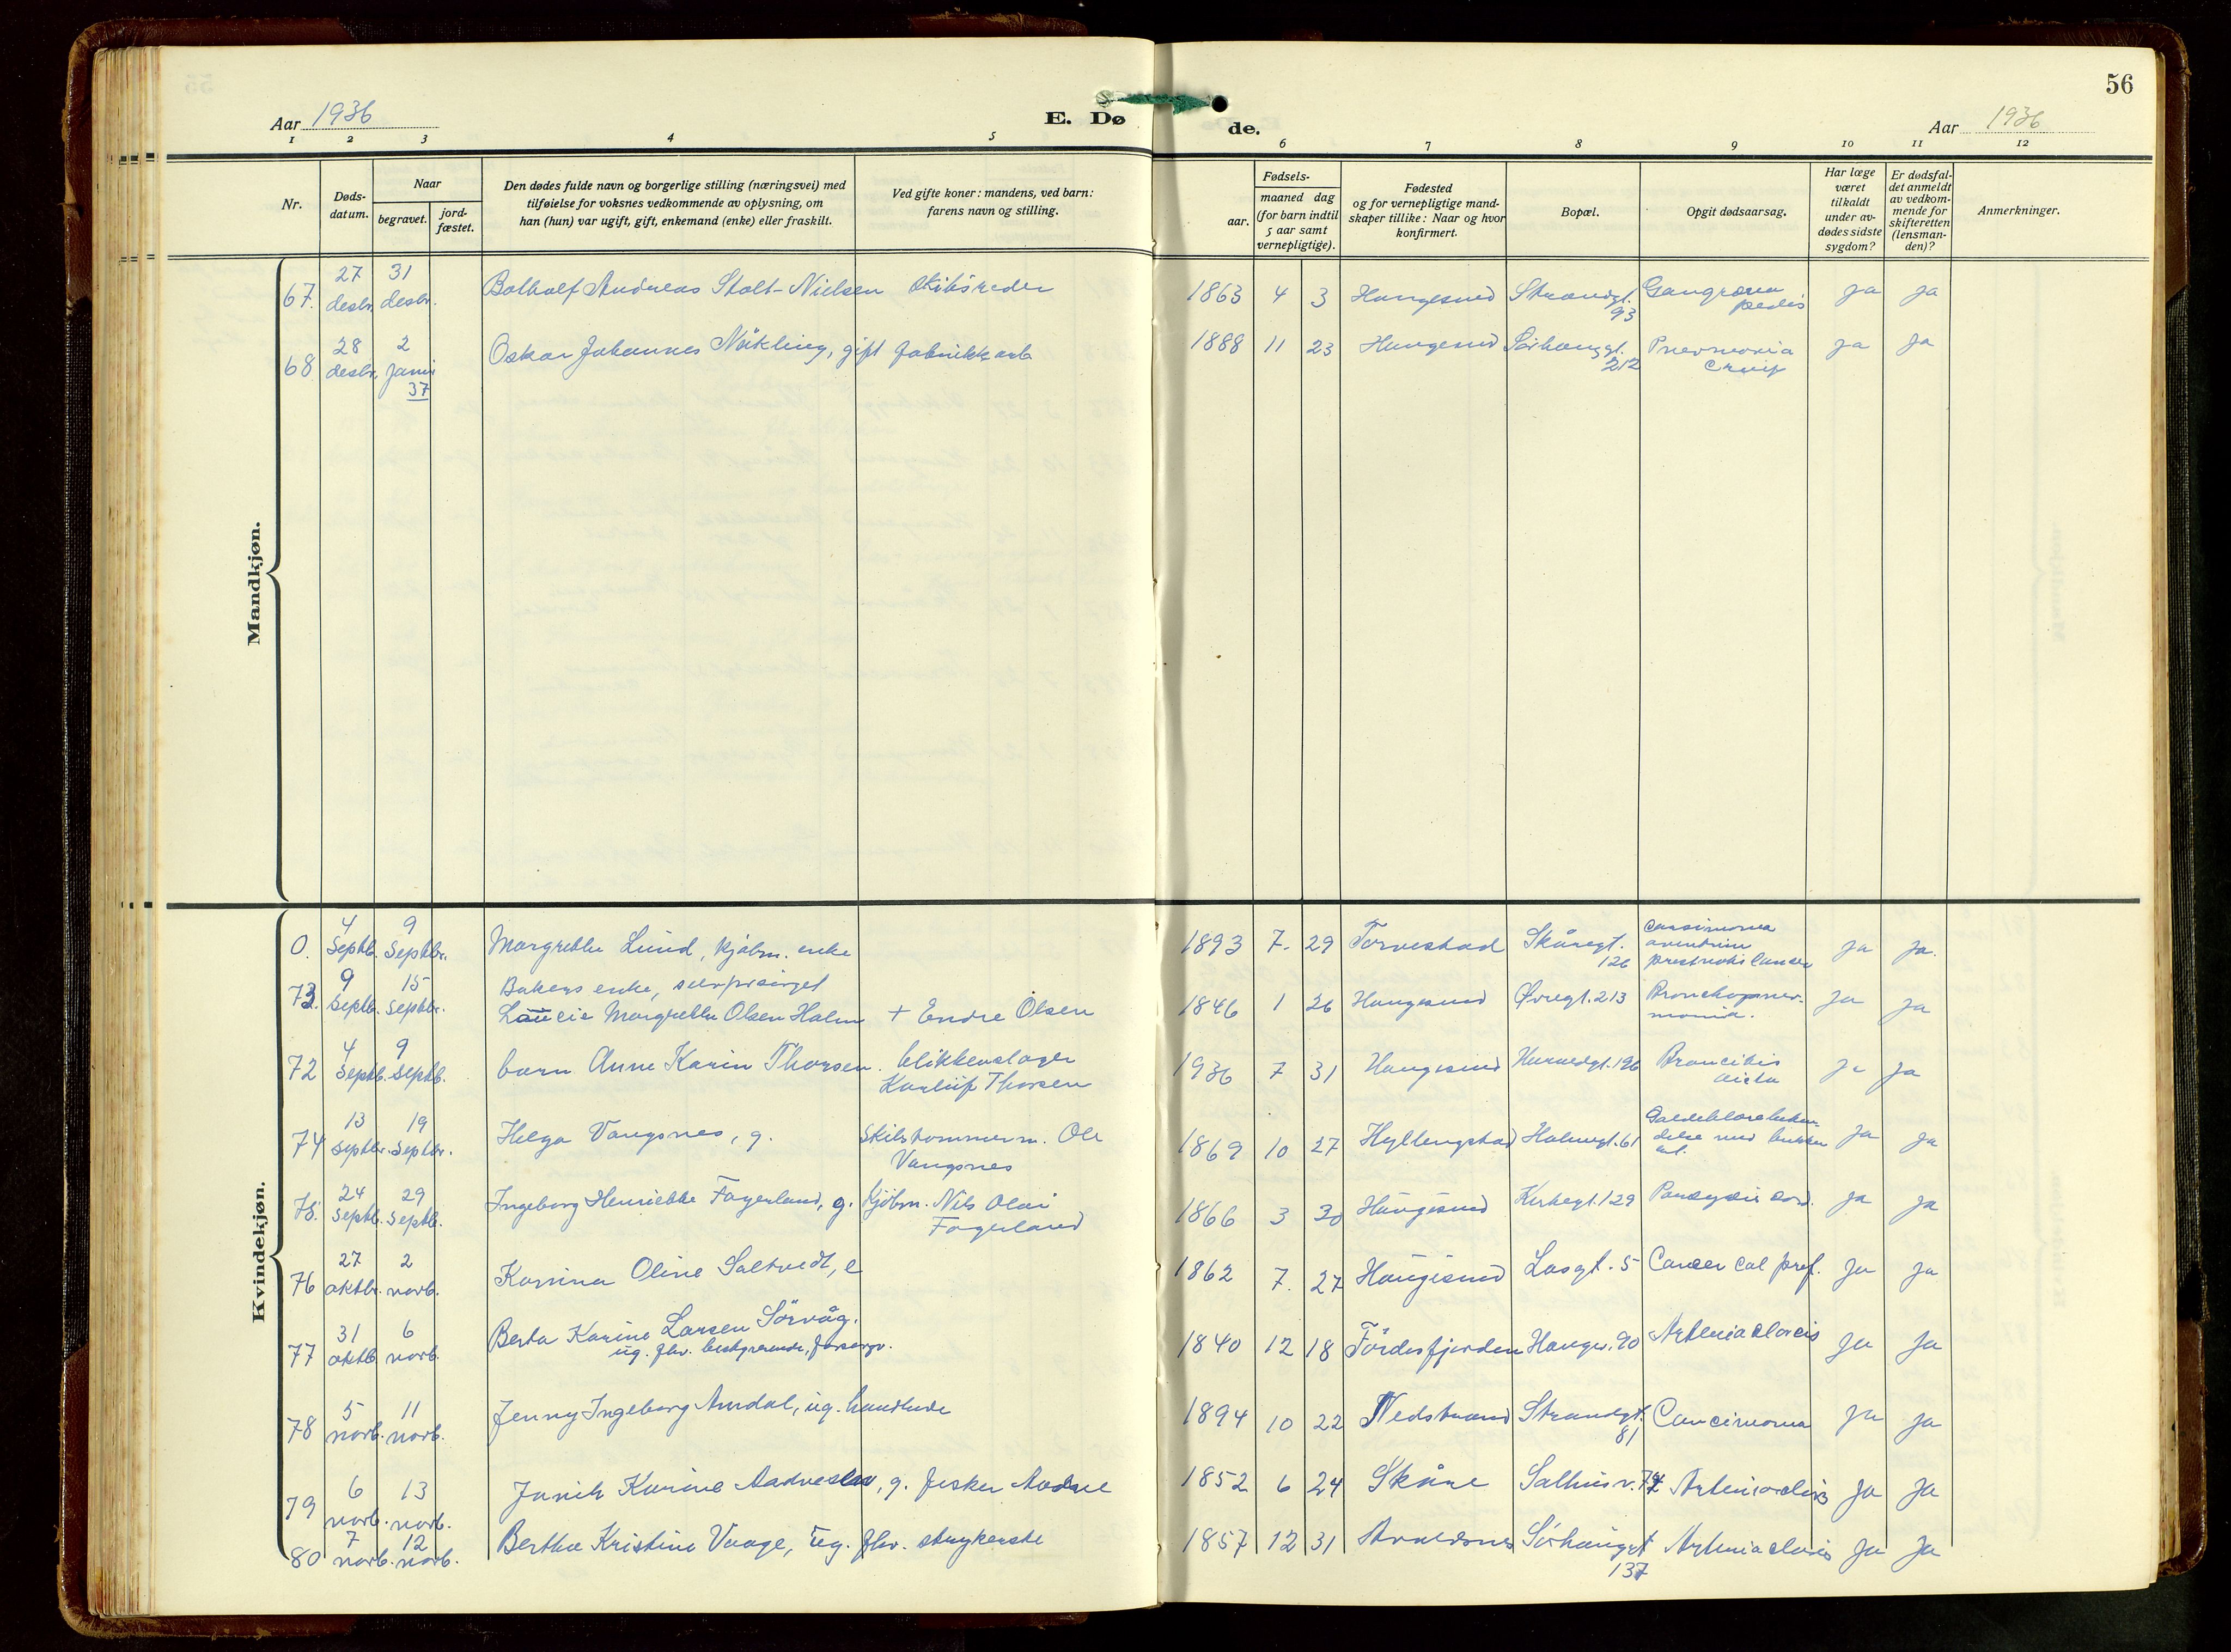 56
Aar 1936
E. Dø
de.
Aar 1936
1 2 3 4 5 6 7 8 9 10 11 12
Nr.
Døds-
datum.
Naar
begravet.
jord-
fæstet.
Den dødes fulde navn og borgerlige stilling (næringsvei) med
tilføielse for voksnes vedkommende av oplysning, om
han (hun) var ugift, gift, enkemand (enke) eller fraskilt.
Ved gifte koner: mandens, ved barn:
farens navn og stilling.
Fødsels-
aar.
maaned dag
(for barn indtil
5 aar samt
vernepligtige).
Fødested
og for vernepligtige mand-
skaper tillike: Naar og hvor
konfirmert.
Bopæl.
Opgit dødsaarsag.
Har læge
været
tilkaldt
under av-
dødes sidste
sygdom?
Er dødsfal-
det anmeldt
av vedkom-
mende for
skifteretten
(lensman-
den)?
Anmerkninger.
Mandkjøn.
27 31
67. desbr. desbr. Andreas Stolt-Nielsen skibsreder 1863 4 3 Haugesund Strandgt. 93 Gangræna pedis ja ja
28 2
68. desbr. januar 37 Oskar Johannes Nökling, gift fabrikkarb 1888 11 23 Haugesund Sörhauggt. 212 Pneumonia Crup ja ja
Kvindekjøn.
4 9
0. Septb. Septbr. Margrethe Lund, kjöbm. enke 1893 7. 29 Torvestad Skåregt. 126 ja ja.
9 15
73. Septb. Septbr. Bakers enke,
Margrethe Olsen Holm + Endre Olsen 1846 1 26 Haugesund Øvregt. 213 Bronchopneu-
monia. ja ja
4 9
72 Septb. Septb. barn Anne Karin Thorsen. blikkenslager
Thorsen 1936 7 31 Haugesund 196 ja ja
13 19
74 Septbr. Septbr. Helga Vangsnes, g. Skibstommerm. Ole
Vangsnes 1869 10 27 Holmegt. 61 ja ja
24 29
75. Septb. Septb. Ingeborg Henriette Fagerland, g. Kjöbm. Nils Olai
Fagerland 1866 3 30 Haugesund Kirkegt. 129 ja ja
27 2
76 oktbr. novb. Oline Saltvedt, e 1862 7. 27 Haugesund 5 Cancer ja ja
31 6
77 oktb novb. Berta Karine Larsen Sörvåg.
ug. fhv. bestyrerinde, forsørgv. 1840 12 18 Fördesfjorden Haugv. 90 ja ja
5 11
78 novb. novb. Jenny Ingeborg Amdal, ug. handlende 1894 10 22 Nedstrand Strandgt. 81 Carcinoma ja ja
6 13
79 novb. novb. Karine g. fisker 1852 6 24 Skåre Salhusv. 74 ja ja
7 12
80 novb. novb. Bertha Kristine Vaage, ug. fhv. strykerske 1857 12 31 Avaldsnes Sörhauggt 137 ja ja